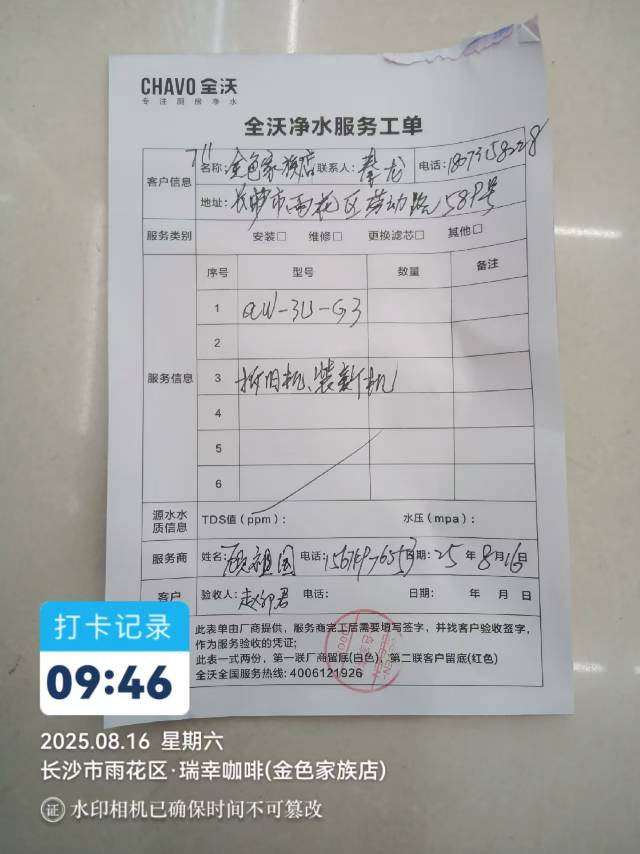 CHAVO 全沃
专注厨房净水
全沃净水服务工单
客户信息 名称: 金色家族店 联系人: 秦龙 电话: 18073158228
地址: 长沙市雨花区劳动路589号
服务类别 安装□ 维修□ 更换滤芯□ 其他□
服务信息 序号 型号 数量 备注
1 QW-3U-G3
2
3 拆旧机、装新机
4
5
6
源水水质信息 TDS值(ppm): 水压(mpa):
服务商 姓名: 顾祖国 电话: 日期: 25年8月16日
客户 验收人: 电话: 日期: 年 月 日
此表单由厂商提供,服务商完工后需要填写签字,并找客户验收签字,
作为服务验收的凭证;
此表一式两份,第一联厂商留底(白色),第二联客户留底(红色)
全沃全国服务热线: 4006121926
打卡记录
09:46
2025.08.16 星期六
长沙市雨花区·瑞幸咖啡(金色家族店)
证 水印相机已确保时间不可篡改